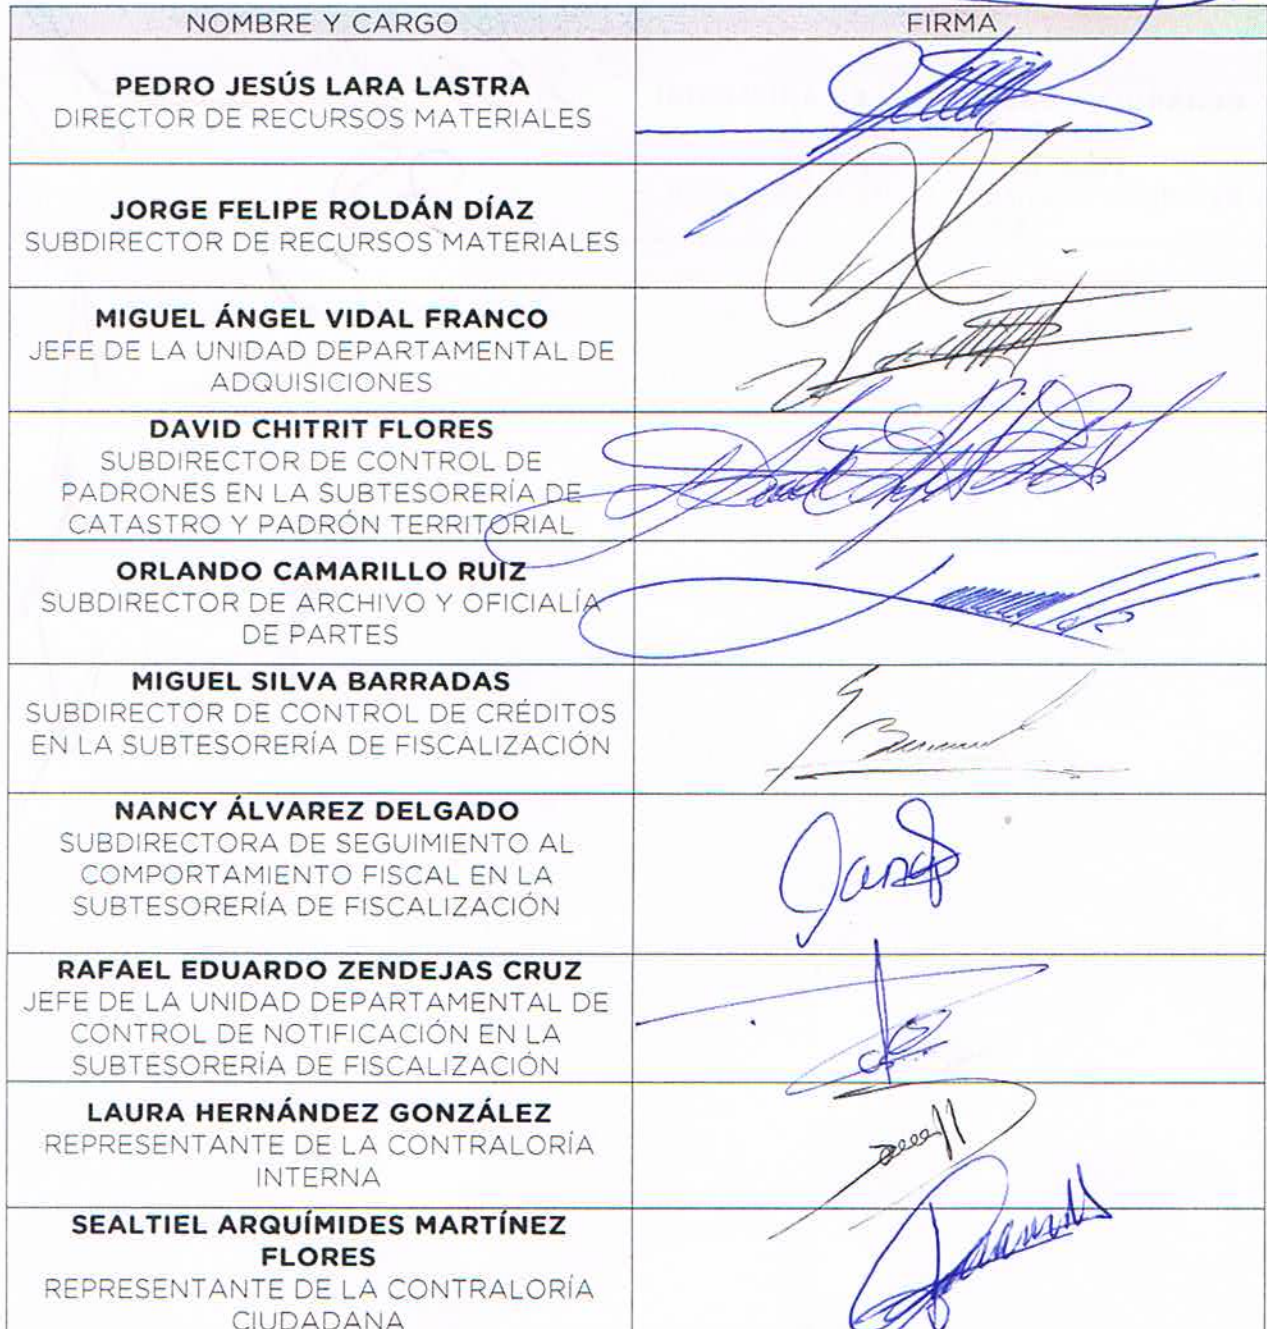 NOMBRE Y CARGO FIRMA
PEDRO JESÚS LARA LASTRA
DIRECTOR DE RECURSOS MATERIALES
JORGE FELIPE ROLDÁN DÍAZ
SUBDIRECTOR DE RECURSOS MATERIALES
MIGUEL ÁNGEL VIDAL FRANCO
JEFE DE LA UNIDAD DEPARTAMENTAL DE
ADQUISICIONES
DAVID CHITRIT FLORES
SUBDIRECTOR DE CONTROL DE
PADRONES EN LA SUBTESORERÍA DE
CATASTRO Y PADRÓN TERRITORIAL
ORLANDO CAMARILLO RUIZ
SUBDIRECTOR DE ARCHIVO Y OFICIALÍA
DE PARTES
MIGUEL SILVA BARRADAS
SUBDIRECTOR DE CONTROL DE CRÉDITOS
EN LA SUBTESORERÍA DE FISCALIZACIÓN
NANCY ÁLVAREZ DELGADO
SUBDIRECTORA DE SEGUIMIENTO AL
COMPORTAMIENTO FISCAL EN LA
SUBTESORERÍA DE FISCALIZACIÓN
RAFAEL EDUARDO ZENDEJAS CRUZ
JEFE DE LA UNIDAD DEPARTAMENTAL DE
CONTROL DE NOTIFICACIÓN EN LA
SUBTESORERÍA DE FISCALIZACIÓN
LAURA HERNÁNDEZ GONZÁLEZ
REPRESENTANTE DE LA CONTRALORÍA
INTERNA
SEALTIEL ARQUÍMIDES MARTÍNEZ
FLORES
REPRESENTANTE DE LA CONTRALORÍA
CIUDADANA